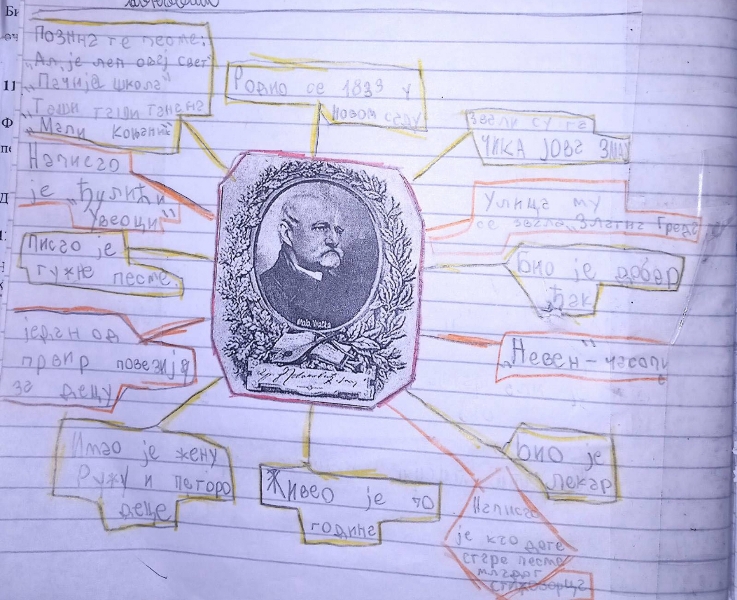 Познате песме:
„Ала је леп овај свет"
„Пачија школа"
„Таши таши танана
„Мали коњаник"
Родио се 1833 у
Новом Саду
Звали су га
ЧИКА ЈОВА ЗМАЈ
Написао
је „Ђулићи
Увеоци"
Улица му
се звала „Златна Греда
Писао је
тужне песме.
Био је добар
ђак
један од
првир поезија
за децу
„Невен"-часопи
Имао је жену
Ружу и петоро
деце
Живео је 70
година
Био је
лекар
Написао
је као дете
старе песме
младог
стихотворца